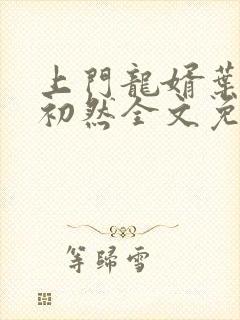 上門龍婿葉
初然全文免
等歸雪